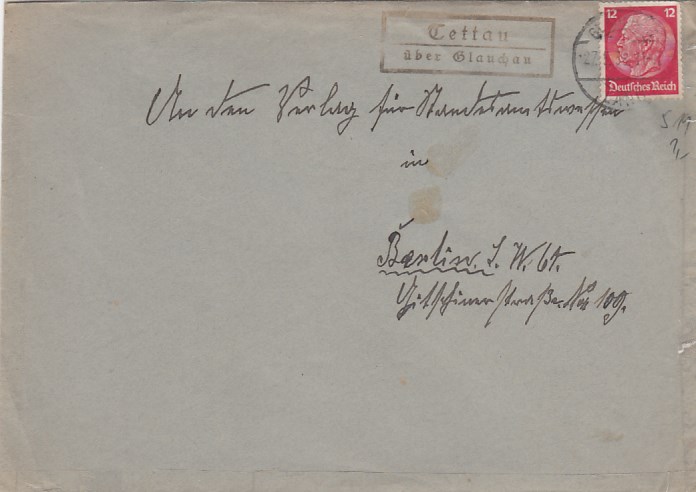 Tettau
über Glauchau
12 12
Deutsches Reich
An den Verlag für Standesamtswesen
in
Berlin. S. W. 61.
Gitschinerstraße No 109.